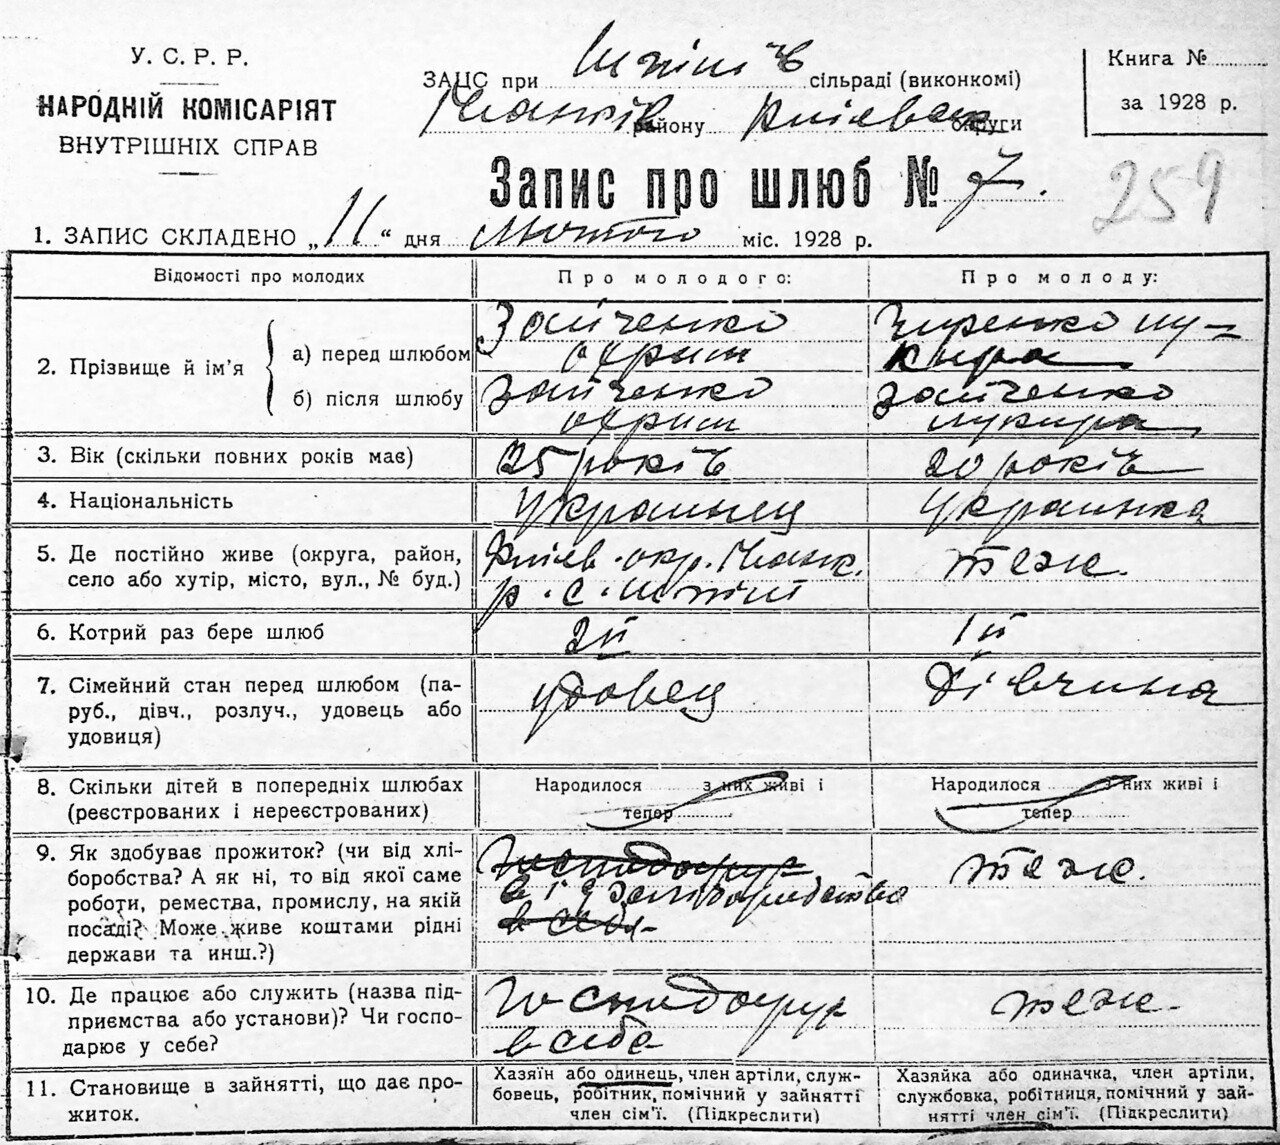 У. С. Р. Р.
НАРОДНІЙ КОМІСАРІЯТ
ВНУТРІШНІХ СПРАВ
ЗАЦС при Шпітьків сільраді (виконкомі)
району Київськ округи
Книга №
за 1928 р.
Запис про шлюб № 7.
259
1. ЗАПИС СКЛАДЕНО „11“ дня Лютого міс. 1928 р.
Відомості про молодих
Про молодого:
Про молоду:
2. Прізвище й ім’я
а) перед шлюбом
Зайченко
Охрим
Лу-
кира
б) після шлюбу
Зайченко
Охрим
Зайченко
Лукира
3. Вік (скільки повних років має)
25 років
20 років
4. Національність
Украинец
Украинка
5. Де постійно живе (округа, район,
село або хутір, місто, вул., № буд.)
Київ. окр.
р. с.
теж.
6. Котрий раз бере шлюб
2й
1й
7. Сімейний стан перед шлюбом (па-
руб., дівч., розлуч., удовець або
удовиця)
удовец
Дівчина
8. Скільки дітей в попередніх шлюбах
(реєстрованих і нереєстрованих)
Народилося з них живі і
тепер
Народилося з них живі і
тепер
9. Як здобуває прожиток? (чи від хлі-
боробства? А як ні, то від якої саме
роботи, ремества, промислу, на якій
посаді? Може живе коштами рідні
держави та инш.?)
в себя
теже.
10. Де працює або служить (назва під-
приємства або установи)? Чи госпо-
дарює у себе?
Господарує
в себе
теже.
11. Становище в зайнятті, що дає про-
житок.
Хазяїн або одинець, член артіли, служ-
бовець, робітник, помічний у зайнятті
член сім’ї. (Підкреслити)
Хазяйка або одиначка, член артіли,
службовка, робітниця, помічний у зай-
нятті член сім’ї. (Підкреслити)